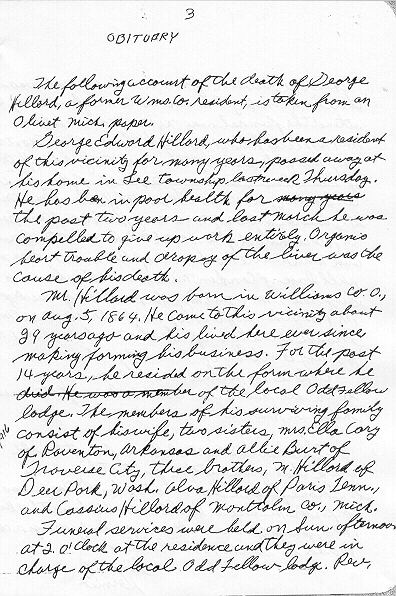 3
OBITUARY
The following account of the death of George
Hillard, a former Wms. Co. resident, is taken from an
Olivet Mich. paper.
George Edward Hillard, who has been a resident
of this vicinity for many years, passed away at
his home in Lee township, last week Thursday.
He has ben in poor health for many years
the past two years and last March he was
compelled to give up work entirely. Organic
heart trouble and dropsy of the liver was the
cause of his death.
Mr. Hillard was born in Williams Co. O.,
on Aug. 5, 1864. He came to this vicinity about
29 years ago and his lived here ever since
making forming his business. For the past
14 years, he resided on the form where he
died. He was a member of the local Odd Fellow
lodge. The members of his surviving family
consist of his wife, two sisters, Mrs. Ella Cary
of Raventon, Arkansas and Allie Burt of
Traverse City, three brothers, M. Hillard of
Deer Park, Wash. Alva Hillard of Paris Tenn.,
and Cassius Hillard of Montcalm Co., Mich.
Funeral services were held on Sun. afternoon
at 2. O'Clock at the residence and they were in
charge of the local Odd Fellow lodge. Rev.